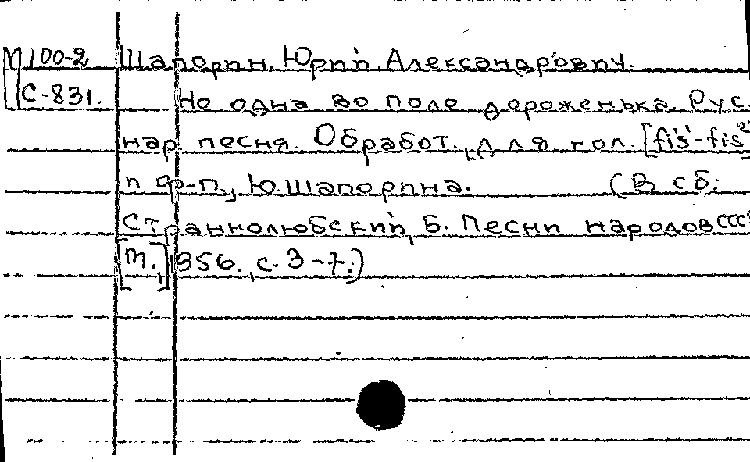 М 100-2 Шапорин, Юрий Александрович.
С-831. Не одна во поле дороженька. Рус.
нар. песня. Обработ. для гол. [fis¹-fis²]
п ф-п., Ю. Шапорина. (В сб:
Страннолюбский, Б. Песни народов СССР
[М.] 1956. с. 3-7.)